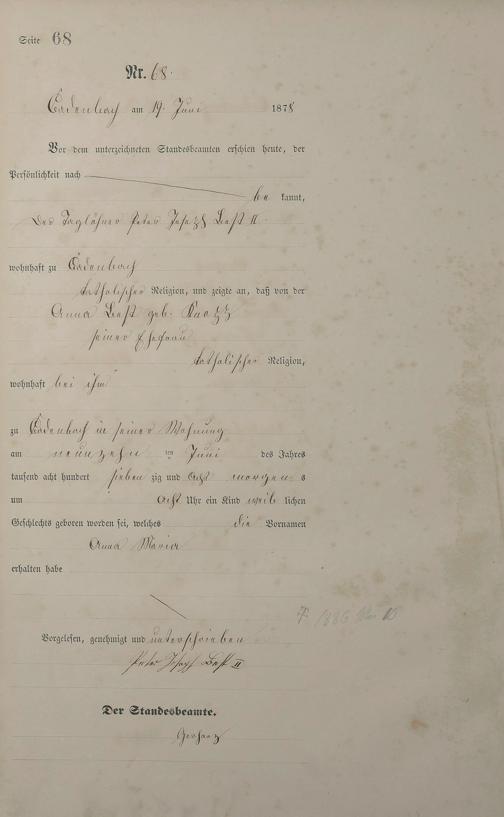 Seite 68
Nr. 68.
Cadenbach am 19. Juni 1878
Vor dem unterzeichneten Standesbeamten erschien heute, der
Persönlichkeit nach
be kannt,
der Taglöhner Peter Joseph II
wohnhaft zu Cadenbach
katholischer Religion, und zeigte an, daß von der
Anna geb.
seiner Ehefrau
katholischer Religion,
wohnhaft bei ihm
zu Cadenbach in seiner Wohnung
am neunzehn ten Juni des Jahres
tausend acht hundert sieben zig und acht morgen s
um acht Uhr ein Kind weib lichen
Geschlechts geboren worden sei, welches die Vornamen
Anna Maria
erhalten habe
1886
Vorgelesen, genehmigt und unterschrieben
Peter Joseph II
Der Standesbeamte.